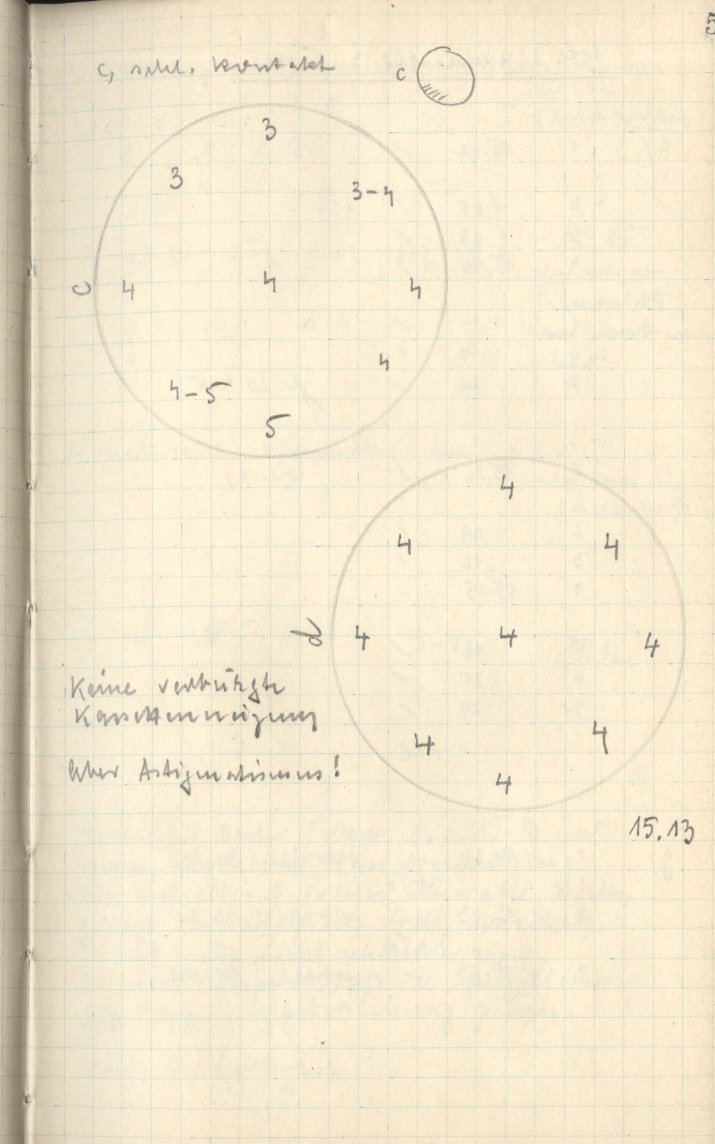 c, schl. Kontakt
c
3
3
3-4
c
4
4
4
4
4-5
5
4
4
4
d
4
4
4
Keine verbürgte
Kassettenneigung
4
4
Aber Astigmatismus!
4
15.13